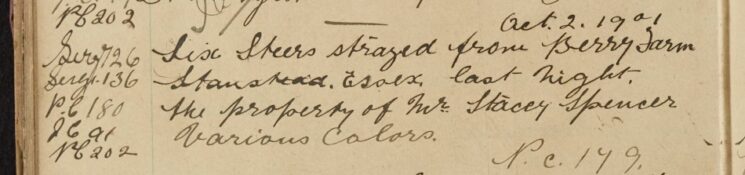 PC 202
Oct. 2. 1901
Serg 726 Six Steers strayed from Berry Farm
Serg 136 Stanstead. Essex. last Night.
P.C 180 the property of Mr. Stacey Spencer
Various Colors.
PC 202
N.C. 179.